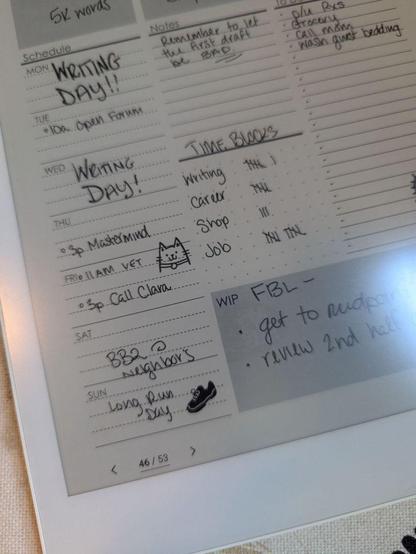 5K words
Schedule
MON WRITING
DAY!!
TUE
•10a Open Forum
WED WRITING
DAY!
THU
•3p Mastermind
FRI •11AM VET
•3p Call Clara
SAT
BBQ @
Neighbors
SUN
Long Run
Day
Notes
Remember to let
the first draft
be BAD
TIME BLOCKS
Writing
Career
Shop
Job
• p/u Rxs
• Grocery
• call mom
• wash guest bedding
WIP FBL -
• get to midpoi
• review 2nd half
< 46 / 53 >